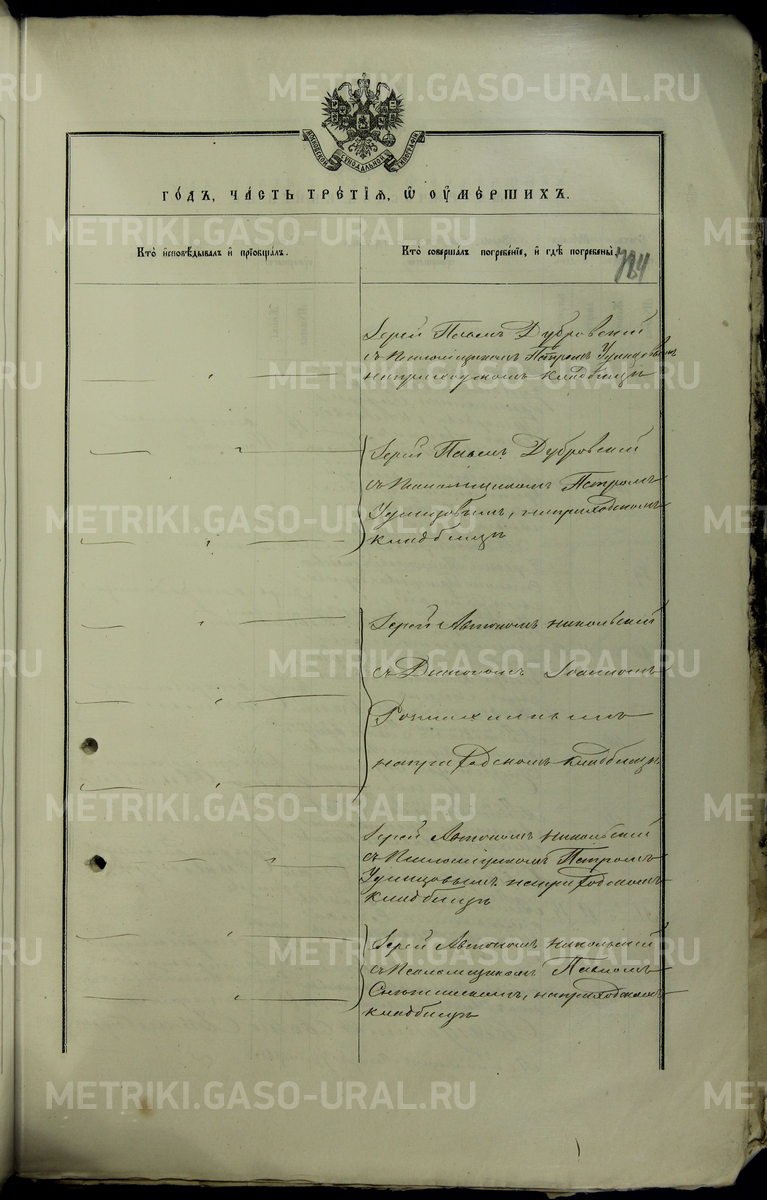 METRIKI.GASO-URAL.RU
МОСКОВСКОЙ СѴНОДАЛЬНОЙ ТИПОГРАФІИ
ГО́ДЪ, ЧА́СТЬ ТРЕ́ТІѦ, Ѡ҆ ОУ҆МЕ́РШИХЪ.
Кто̀ и҆сповѣ́дывалъ и҆ прїѡбща́лъ.
Кто̀ соверша́лъ погребе́нїе, и҆ гдѣ̀ погребены̀.
724
Іерей Павелъ Дубровскій
съ Псаломщикомъ Петромъ Удинцовымъ
на приходскомъ кладбищѣ
Іерей Павелъ Дубровскій
съ Псаломщикомъ Петромъ
Удинцовымъ, на приходскомъ
кладбищѣ
Іерей Автономъ Никольскій
съ Діакономъ Іоанномъ
на приходскомъ кладбищѣ
Іерей Автономъ Никольскій
съ Псаломщикомъ Петромъ
Удинцовымъ на приходскомъ
кладбищѣ
Іерей Автономъ Никольскій
съ Псаломщикомъ Павломъ
на приходскомъ
кладбищѣ